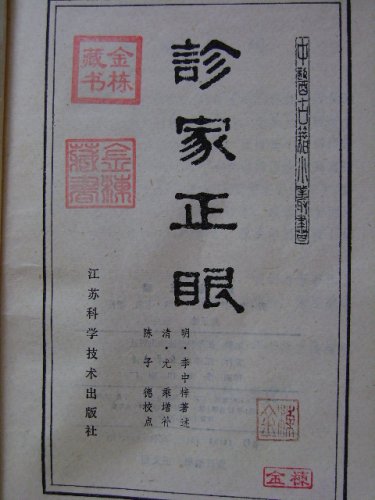 中醫古籍小叢書
診家正眼
明·李中梓著述
清·尤乘增补
陈子德校点
江苏科学技术出版社
金栋
藏书
金棟
藏書
金棟